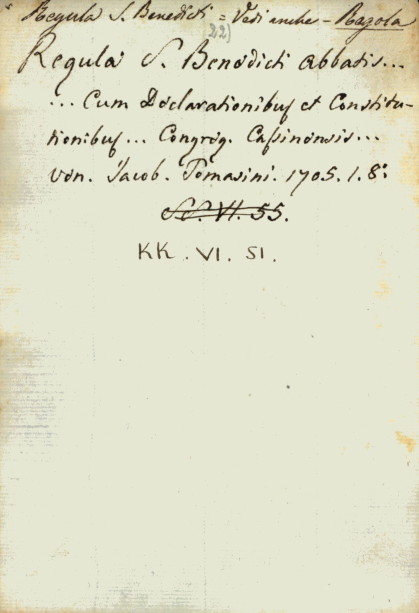 Regula S. Benedicti = Vedi anche - Regola
22)
Regula S. Benedicti Abbatis...
... Cum Declarationibus et Constitu-
tionibus... Congreg. Cassinensis...
Ven. Jacob. Tomasini. 1705. 1. 8:
SS. VI. 55.
KK. VI. 51.